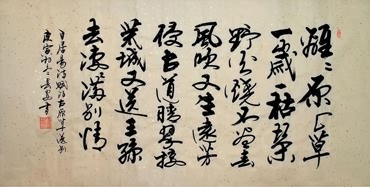 離々原上草
一歲一枯榮
野火燒不盡春
風吹又生遠芳
侵古道晴翠接
荒城又送王孫
去凄滿別情
白居易詩賦得古原草送別
庚寅初冬
書